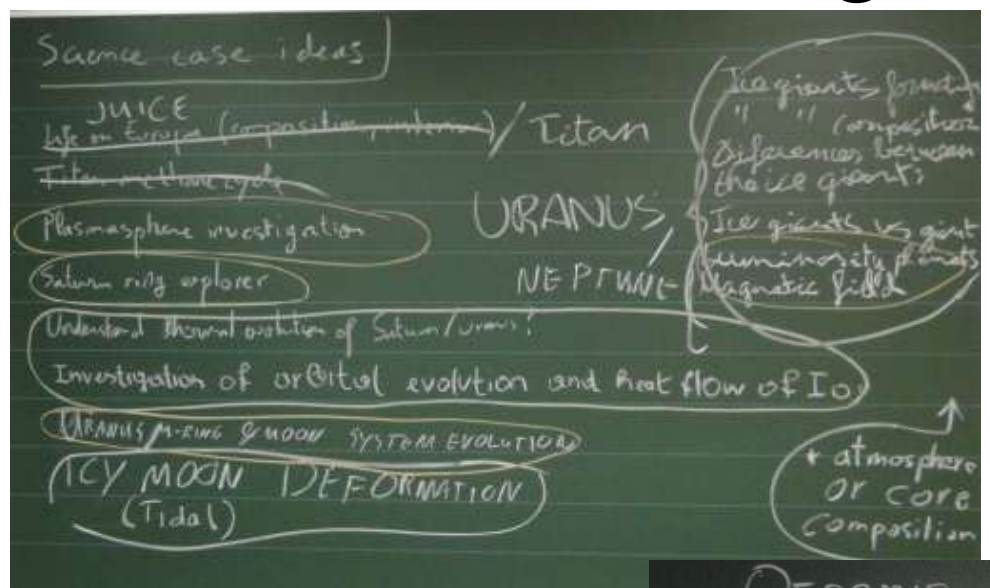 Science case ideas
JUICE
Life on Europa (composition, interior) / Titan
Titan methane cycle
Plasmasphere investigation
Saturn ring explorer
Understand thermal evolution of Saturn/Uranus?
Investigation of orbital evolution and heat flow of Io
URANUS RING & MOON SYSTEM EVOLUTION
ICY MOON DEFORMATION
(Tidal)
URANUS/
NEPTUNE
Ice giants formation
" " composition
Diferences between
the ice giants
Ice giants vs giant
planets
Luminosity
Magnetic field
+ atmosphere
or core
composition